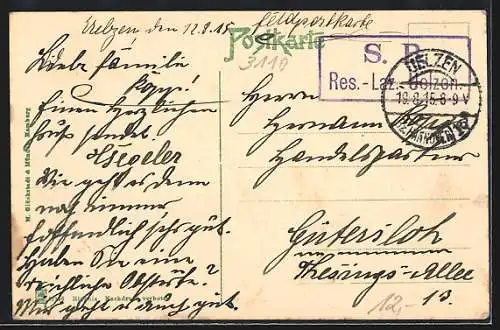 Uelzen den 12.8.15
Feldpostkarte
Postkarte
3110
S. B.
Res.-Laz. Uelzen.
UELZEN
19.8.15.8-9V
(HANNOVER)
Liebe Familie
Kopp!
Einen Herzlichen
Gruß sendet
Wie geht es denn
noch immer
hoffendlich sehr gut.
Haben Sie eine
reichliche Obsternte?
Mir geht es auch gut.
Herrn
Hermann
Handelsgärtner
Gütersloh
Allee
13.
12,-
M. Glückstadt & Münden, Hamburg
Nachdruck verboten